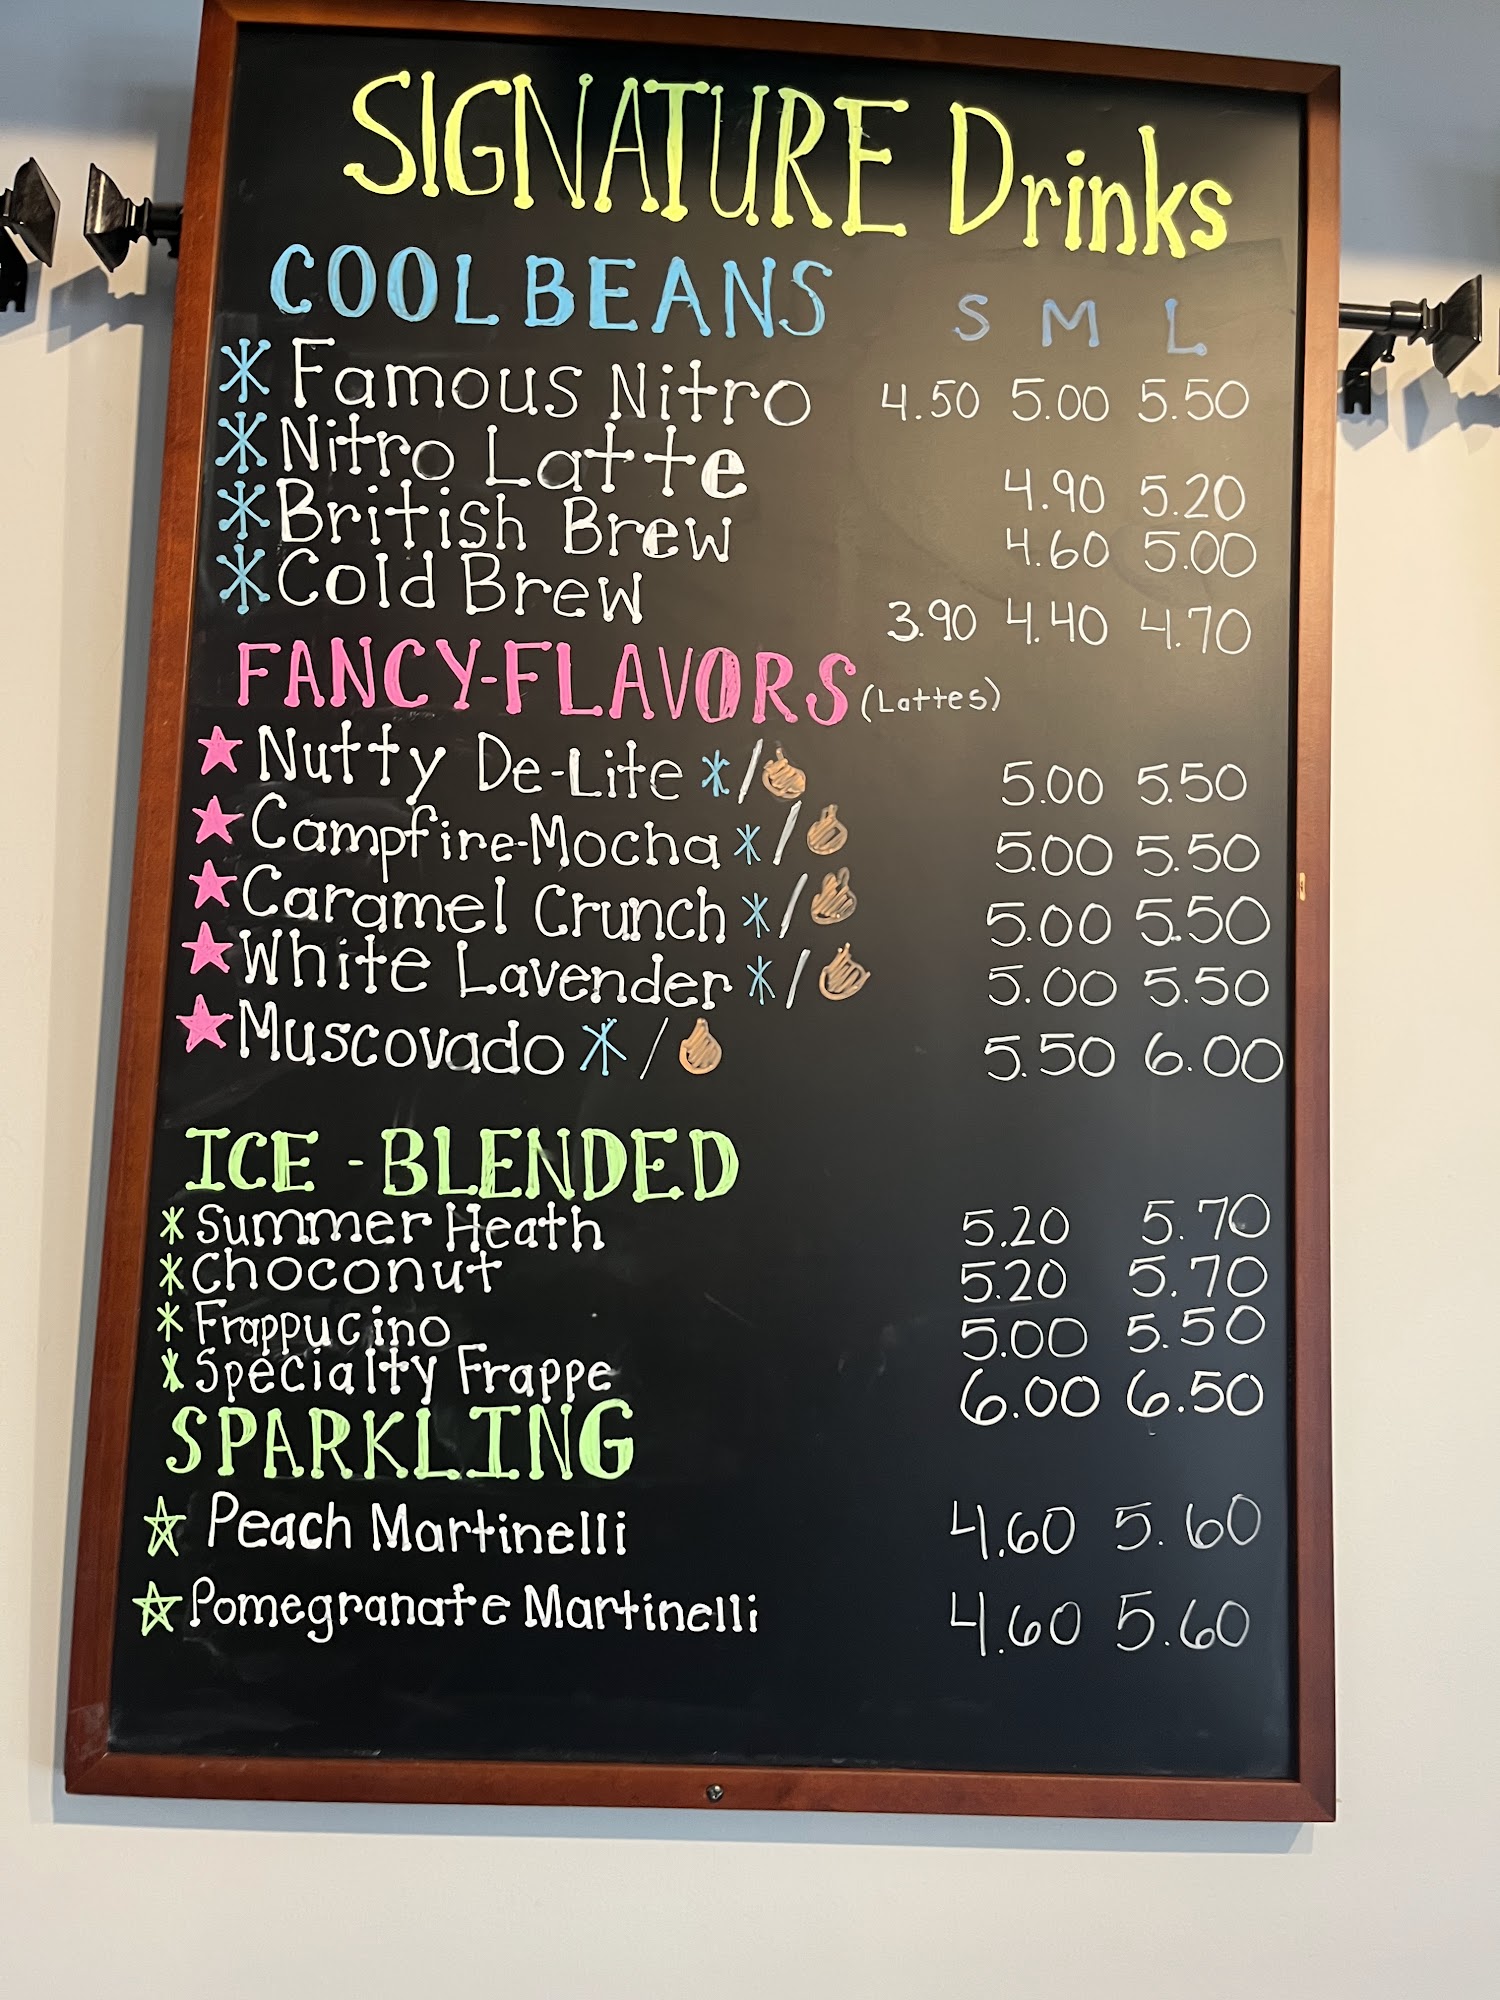 SIGNATURE Drinks
COOL BEANS S M L
Famous Nitro 4.50 5.00 5.50
Nitro Latte 4.90 5.20
British Brew 4.60 5.00
Cold Brew 3.90 4.40 4.70
FANCY-FLAVORS (Lattes)
Nutty De-Lite */ 5.00 5.50
Campfire-Mocha */ 5.00 5.50
Caramel Crunch */ 5.00 5.50
White Lavender */ 5.00 5.50
Muscovado */ 5.50 6.00
ICE-BLENDED
*Summer Heath 5.20 5.70
*Choconut 5.20 5.70
*Frappucino 5.00 5.50
*Specialty Frappe 6.00 6.50
SPARKLING
Peach Martinelli 4.60 5.60
Pomegranate Martinelli 4.60 5.60